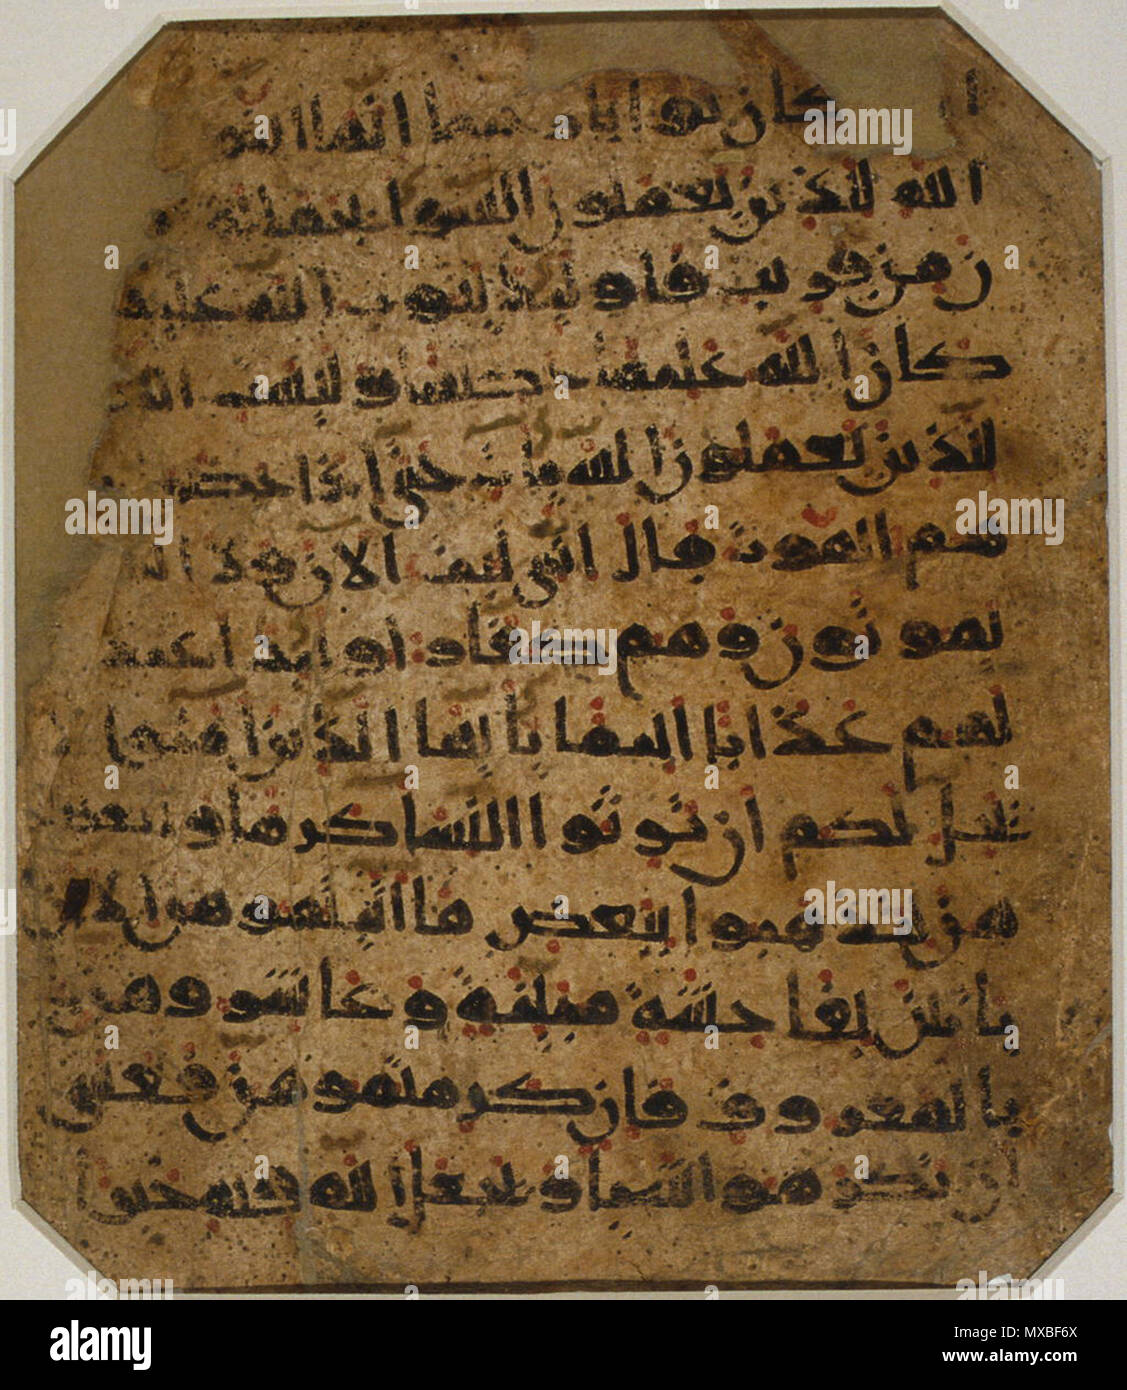 كان توابا رحيما انما التو
الله للذين يعملون السوا بجهالة
ن من قريب فاولئك يتوب الله عليهم
كان الله عليما حكيما وليست
للذين يعملون السيات حتى اذا حضر
هم الموت قال انى تبت الان ولا
يموتون وهم كفار اولئك اعتدنا
لهم عذابا اليما يا ايها الذين امنوا
يحل لكم ان ترثوا النسا كرها ولا
هن لتذهبوا ببعض ما اتيتموهن الا ان
ياتين بفاحشة مبينة وعاشروهن
بالمعروف فان كرهتموهن فعسى
ان تكرهوا شيا ويجعل الله فيه خيرا
alamy
Image ID: MXBF6X
www.alamy.com